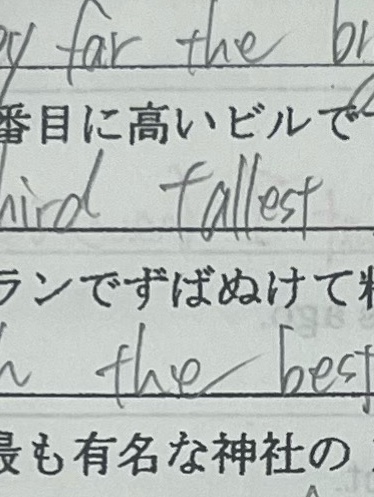 by far the br
番目に高いビルで
hird tallest
ランでずばぬけて料
the best
最も有名な神社の